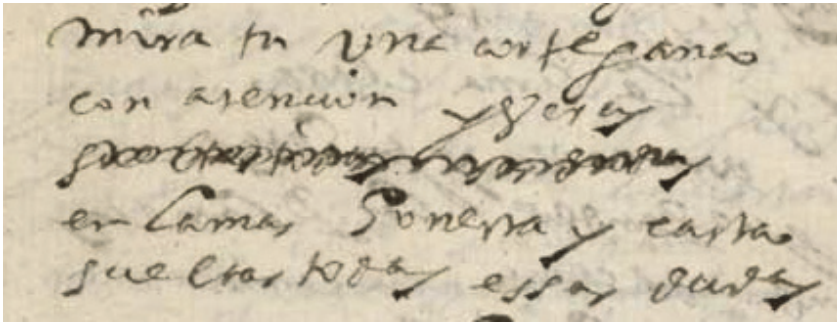 mira tu una cortesana
con atencion y veras
en la mas honesta y casta
sueltas todas essas dudas